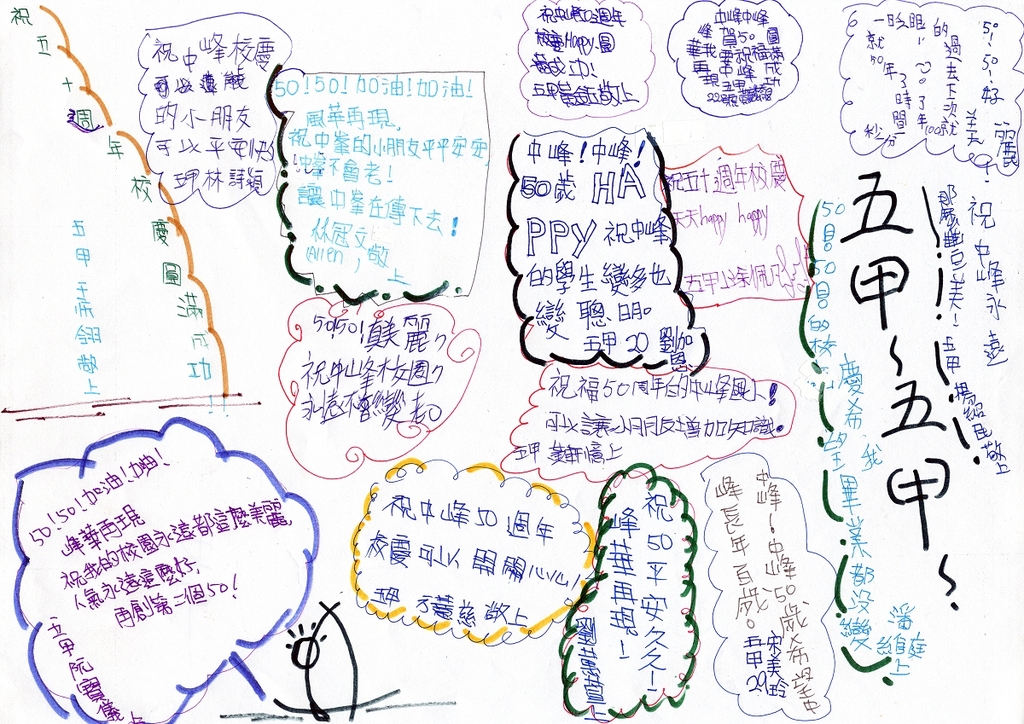 祝五十週年校慶圓滿成功!!
五甲
敬上
祝中峰校慶
可以
的小朋友
可以平安快
五甲林詩穎
50!50!加油!加油!
風華再現,
祝中峯的小朋友平平安安
!中峯不會老!
讓中峯在傳下去!
林冠文
(Allen)敬
上
祝中峰50週年
校慶Happy.圓
滿成功!
五甲 敬上
中峰中峰
賀50圓
祝福滿
中峰成
再
現五甲功
22號
50!50!好美麗
一眨眼!就50年了
的過去下次就100年了
6秒分時間
中峰!中峰!
50歲 HA
PPY 祝中峰
的學生變多也
變聰明。
五甲20劉加恩
祝五十週年校慶
天天happy happy
五甲
50!50!真美麗
祝中峰校園
永遠不會變老
祝福50周年的中峰國小!
可以讓小朋友增加知識。
五甲 上
50!50!加油!加油!
峰華再現
祝我的校園永遠都這麼美麗
人氣永遠這麼好,
再創第二個50!
五甲阮寶儀上
祝中峰50週年
校慶可以開開心心!
五甲 方薏慈敬上
祝50平安久久!
峰華再現!
劉薏萱上
中峰!中峰50歲希望中
峰長年百歲。
五甲29宋美玲
50!50!的校慶希望畢業都沒變
我
潘維庭上
五甲~五甲~
祝中峰永遠
都麼豐美!五甲
楊紹民敬上